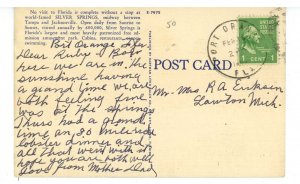 No visit to Florida is complete without a stop at
world-famed SILVER SPRINGS, midway between
Tampa and Jacksonville. Open daily from Sunrise to
Sunset, viewed annually by 600,000, Silver Springs is
Florida's largest and most heavily patronized free ad-
mission semi-public park. Cabins, restaurants,
E-7975
50
Port Orange Fla
Dear Ruske & Bobo
here we are in the
sunshine having
a grand time we are
both feeling fine
was at the springs
Thurs had a grand
time an 80 mile ride
lobster dinner and
all that went with it
hope you are both well
love from Mother & Dad
POST CARD
PORT ORANGE
FLA.
1 CENT
Mr. Mrs R A Eriksen
Lawton Mich.